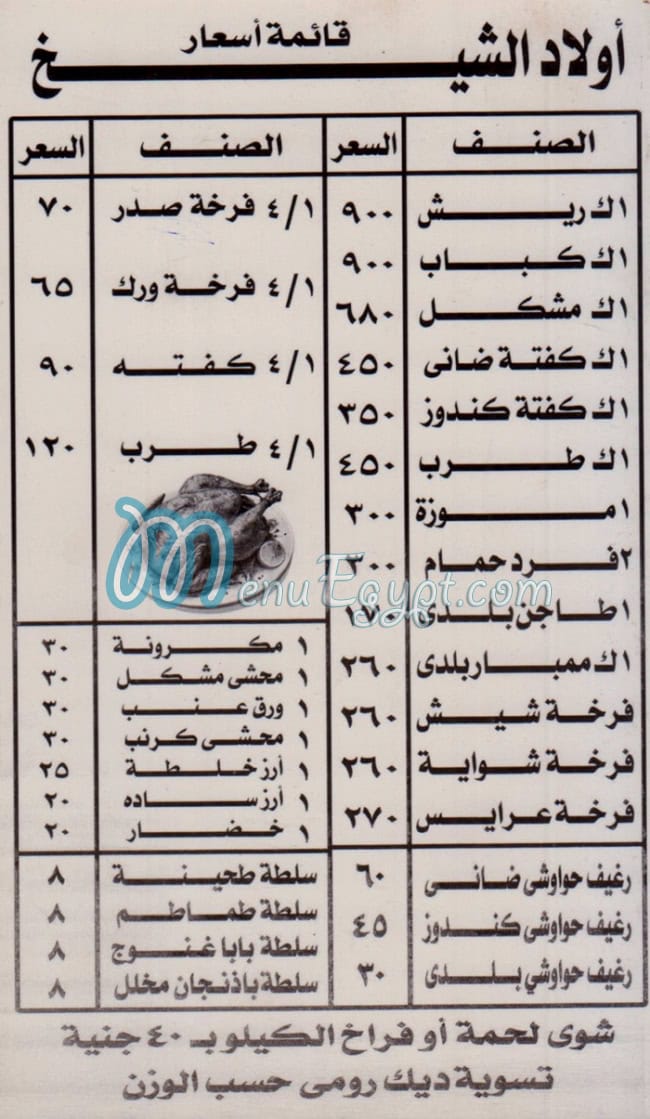 قائمة أسعار
أولاد الشيخ
الصنف السعر
١ ك ريش ٩٠٠
١ ك كباب ٩٠٠
١ ك مشكل ٦٨٠
١ ك كفتة ضانى ٤٥٠
١ ك كفتة كندوز ٣٥٠
١ ك طرب ٤٥٠
١ موزة ٣٠٠
٢ فرد حمام ٣٠٠
١ طاجن بلدى ١٧٠
١ ك ممبار بلدى ٢٦٠
فرخة شيش ٢٦٠
فرخة شواية ٢٦٠
فرخة عرايس ٢٧٠
رغيف حواوشى ضانى ٦٠
رغيف حواوشى كندوز ٤٥
رغيف حواوشي بلدى ٣٠
الصنف السعر
١/٤ فرخة صدر ٧٠
١/٤ فرخة ورك ٦٥
١/٤ كفته ٩٠
١/٤ طرب ١٢٠
MenuEgypt.com
١ مكرونة ٣٠
١ محشى مشكل ٣٠
١ ورق عنب ٣٠
١ محشى كرنب ٣٠
١ أرز خلطة ٢٥
١ أرز ساده ٢٠
١ خضار ٢٠
سلطة طحينة ٨
سلطة طماطم ٨
سلطة بابا غنوج ٨
سلطة باذنجان مخلل ٨
شوى لحمة أو فراخ الكيلو بـ ٤٠ جنية
تسوية ديك رومى حسب الوزن